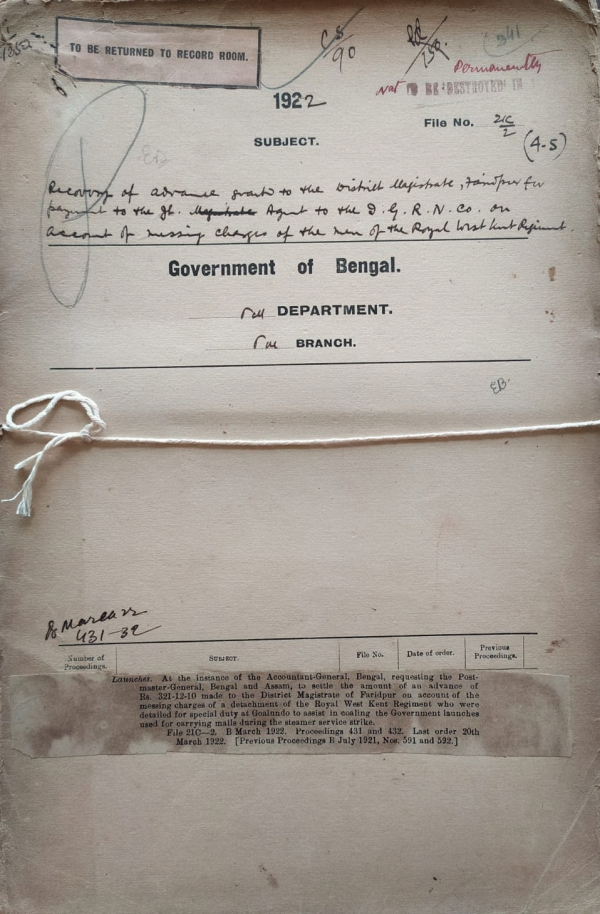 TO BE RETURNED TO RECORD ROOM.
CS
90
Permanently
Not TO BE DESTROYED IN
1922
File No. 21C/2
(4-5)
SUBJECT.
Recovery of advance grant to the District Magistrate, Faridpur for
payment to the Jt. Magistrate Agent to the I. G. R. N. Co. on
account of messing charges of the men of the Royal West Kent Regiment.
Government of Bengal.
Pol DEPARTMENT.
Pol BRANCH.
EB.
B March 22
431-32
Number of Proceedings.
SUBJECT.
FILE NO.
Date of order.
Previous Proceedings.
Launches. At the instance of the Accountant-General, Bengal, requesting the Post-
master-General, Bengal and Assam, to settle the amount of an advance of
Rs. 321-12-10 made to the District Magistrate of Faridpur on account of the
messing charges of a detachment of the Royal West Kent Regiment who were
detailed for special duty at Goalundo to assist in coaling the Government launches
used for carrying mails during the steamer service strike.
File 21C—2. B March 1922. Proceedings 431 and 432. Last order 20th
March 1922. [Previous Proceedings B July 1921, Nos. 591 and 592.]